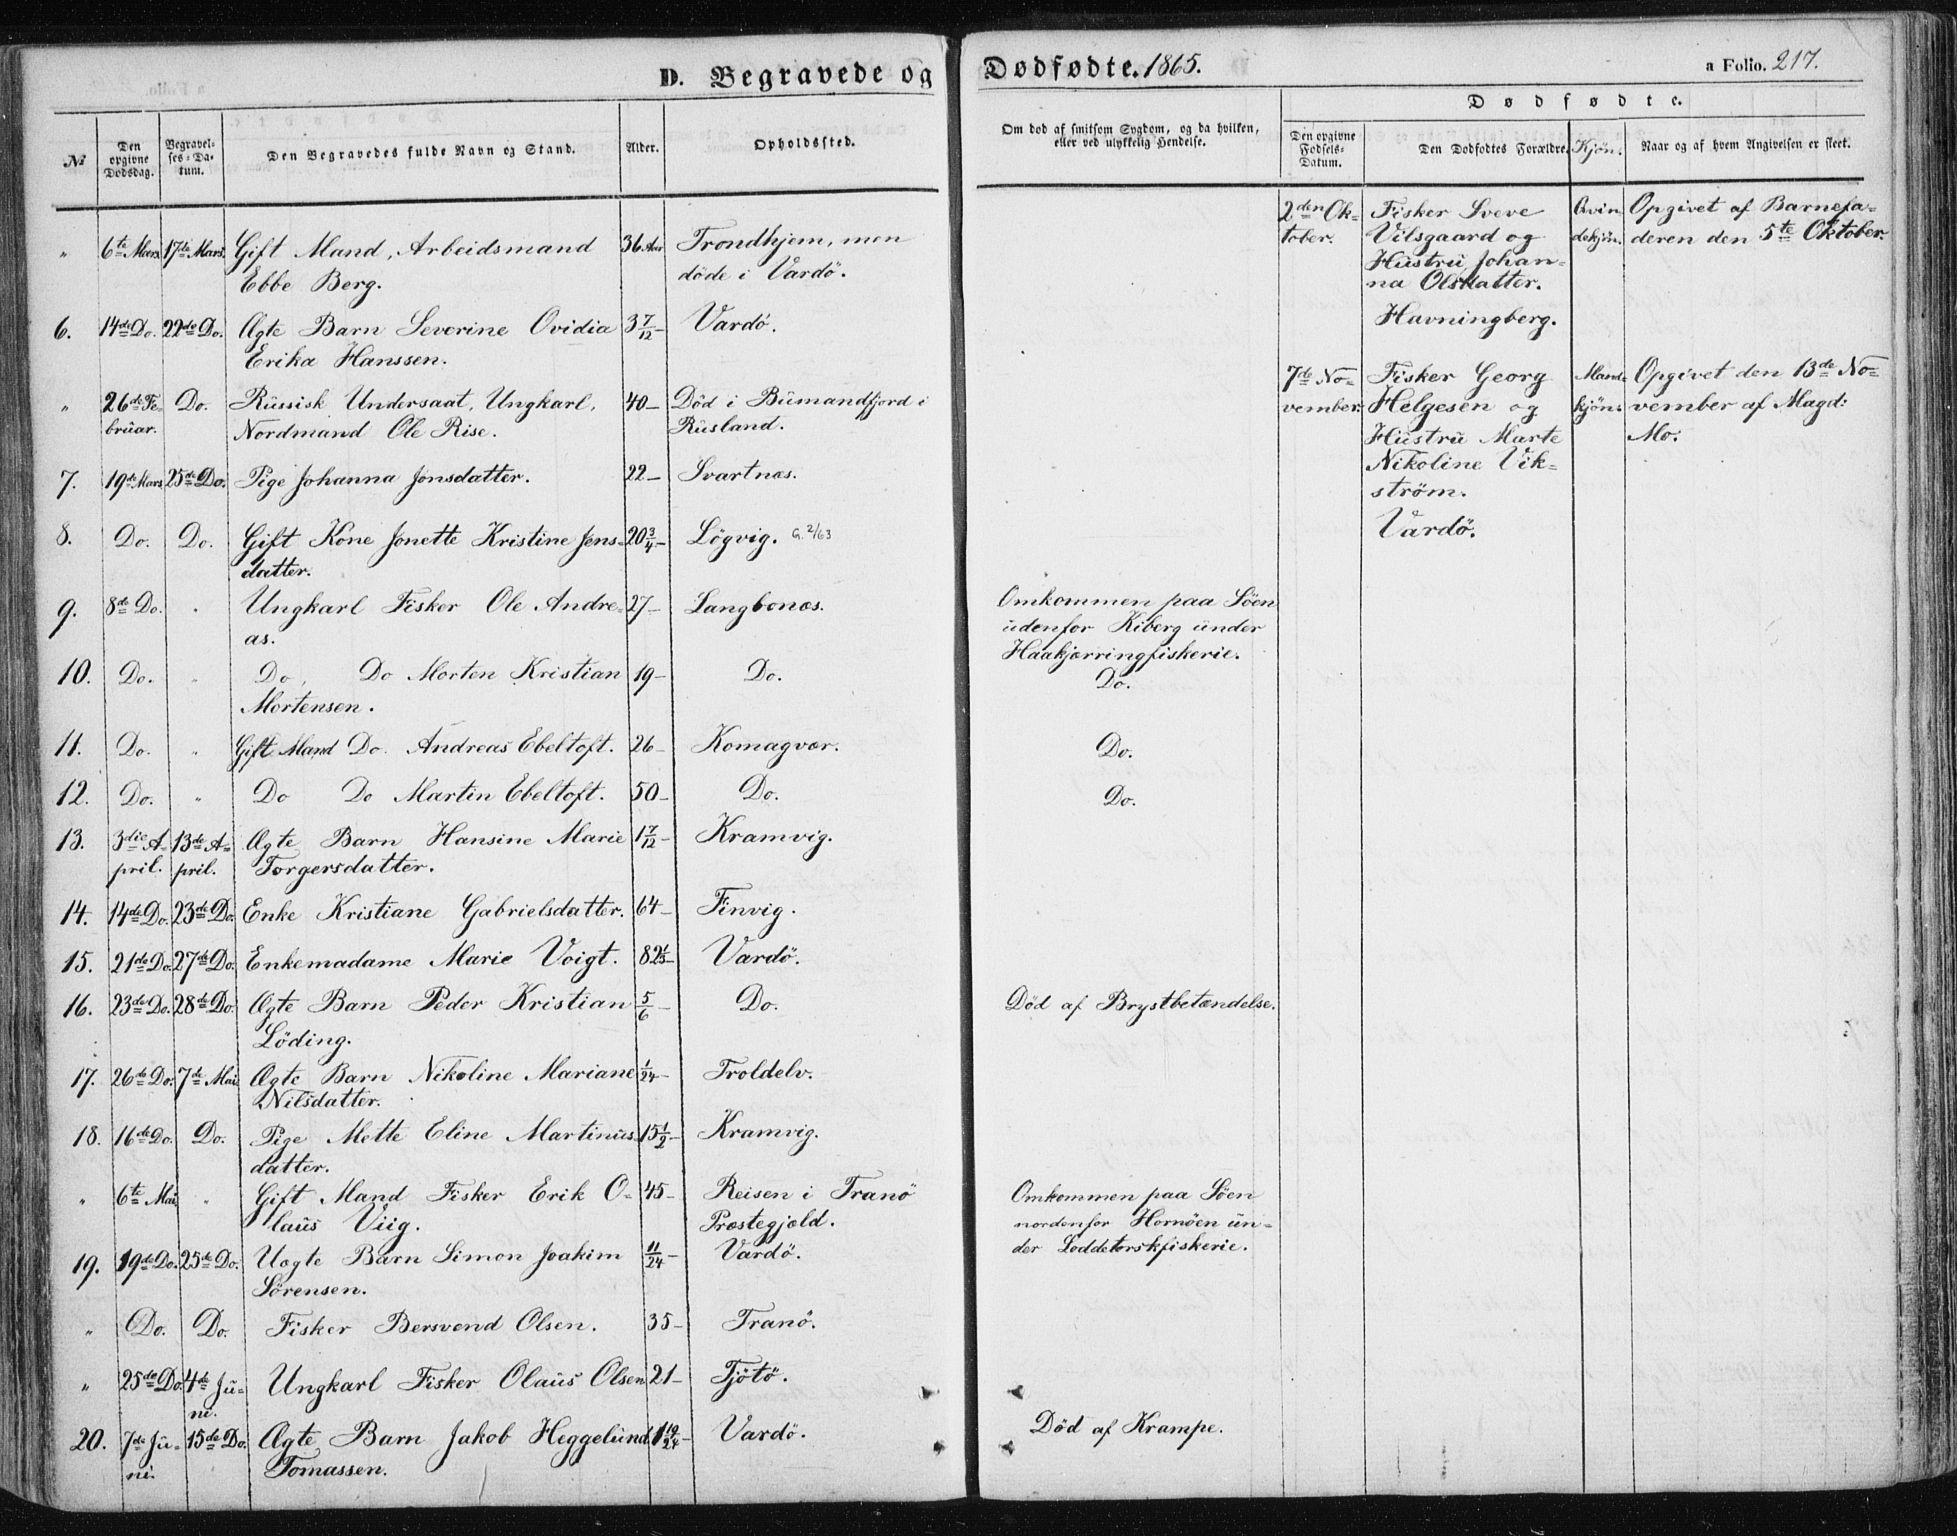 D. Begravede og Dødfødte. 1865. a Folio. 217.
№
Den opgivne Dødsdag.
Begravelses-Datum.
Den Begravedes fulde Navn og Stand.
Alder.
Opholdssted.
Om død af smitsom Sygdom, og da hvilken,
eller ved ulykkelig Hendelse.
Dødfødte.
Den opgivne Fødsels-Datum.
Den Dødfødtes Forældre.
Kjøn.
Naar og af hvem Angivelsen er skeet.
" 6te Mars. 17de Mars. Gift Mand, Arbeidsmand 36 Aar Trondhjem, men
Ebbe Berg. døde i Vardö.
6. 14de Do. 22de Do. Ægte Barn Severine Ovidia 3 7/12 Vardö.
Erika Hanssen.
" 26de Fe- Do. Russisk Undersaat, Ungkarl, 40 – Död i Bumandfjord i
bruar. Nordmand Ole Rise. Rusland.
7. 19de Mars 25de Do. Pige Johanna Jonsdatter. 22 – Svartnæs.
8. Do. Do. Gift Kone Jonette Kristine Jens- 20 3/4 – Lögvig. G. 2/63
datter.
9. 8de Do. " Ungkarl Fisker Ole Andre- 27 – Langbunæs. Omkommen paa Söen
as. udenfor Kiberg under
Haakjærringfiskerie.
10. Do. " Do. Do Morten Kristian 19 – Do. Do.
Mortensen.
11. Do. " Gift Mand Do. Andreas Ebeltoft. 26 – Komagvær. Do.
12. Do. " Do Do Martin Ebeltoft. 50 – Do. Do.
13. 3die A- 13de A- Ægte Barn Hansine Marie 1 7/12 – Kramvig.
pril. pril. Torgersdatter.
14. 14de Do. 23de Do. Enke Kristiane Gabrielsdatter. 64 – Finvig.
15. 21de Do. 27de Do. Enkemadame Marie Voigt. 82 – Vardö.
16. 23de Do. 28de Do. Ægte Barn Peder Kristian 5/6 – Do. Död af Brystbetændelse.
Löding.
17. 26de Do. 7de Mai Ægte Barn Nikoline Mariane 1/24 – Troldelv.
Nilsdatter.
18. 16de Do. Do. Pige Mette Eline Martinus- 15 1/2 – Kramvig.
datter.
" 6te Mai " Gift Mand Fisker Erik O- 45 – Reisen i Tranö Omkommen paa Söen
laus Viig. Præstegjæld. nordenfor Hornöen un-
der Loddetorskfiskerie.
19. 19de Do. 25de Do. Uægte Barn Simon Joakim 11/24 – Vardö.
Sörensen.
" Do. Do. Fisker Bersvend Olsen. 35 – Tranö.
" 25de Do. 4de Ju- Ungkarl Fisker Olaus Olsen 21 – Tjötö.
ni.
20. 7de Ju- 15de Do. Ægte Barn Jakob Heggelund 1 19/24 – Vardö. Död af Krampe.
ni. Tomassen.
2den Ok- Fisker Sveve Qvin- Opgivet af Barnefa-
tober. Vilsgaard og dekjön. deren den 5te Oktober.
Hustru Johan-
na Olsdatter.
Havningberg.
7de No- Fisker Georg Mand- Opgivet den 13de No-
vember. Helgesen og kjön. vember af Magd:
Hustru Marte Mo.
Nikoline Vik-
ström.
Vardö.